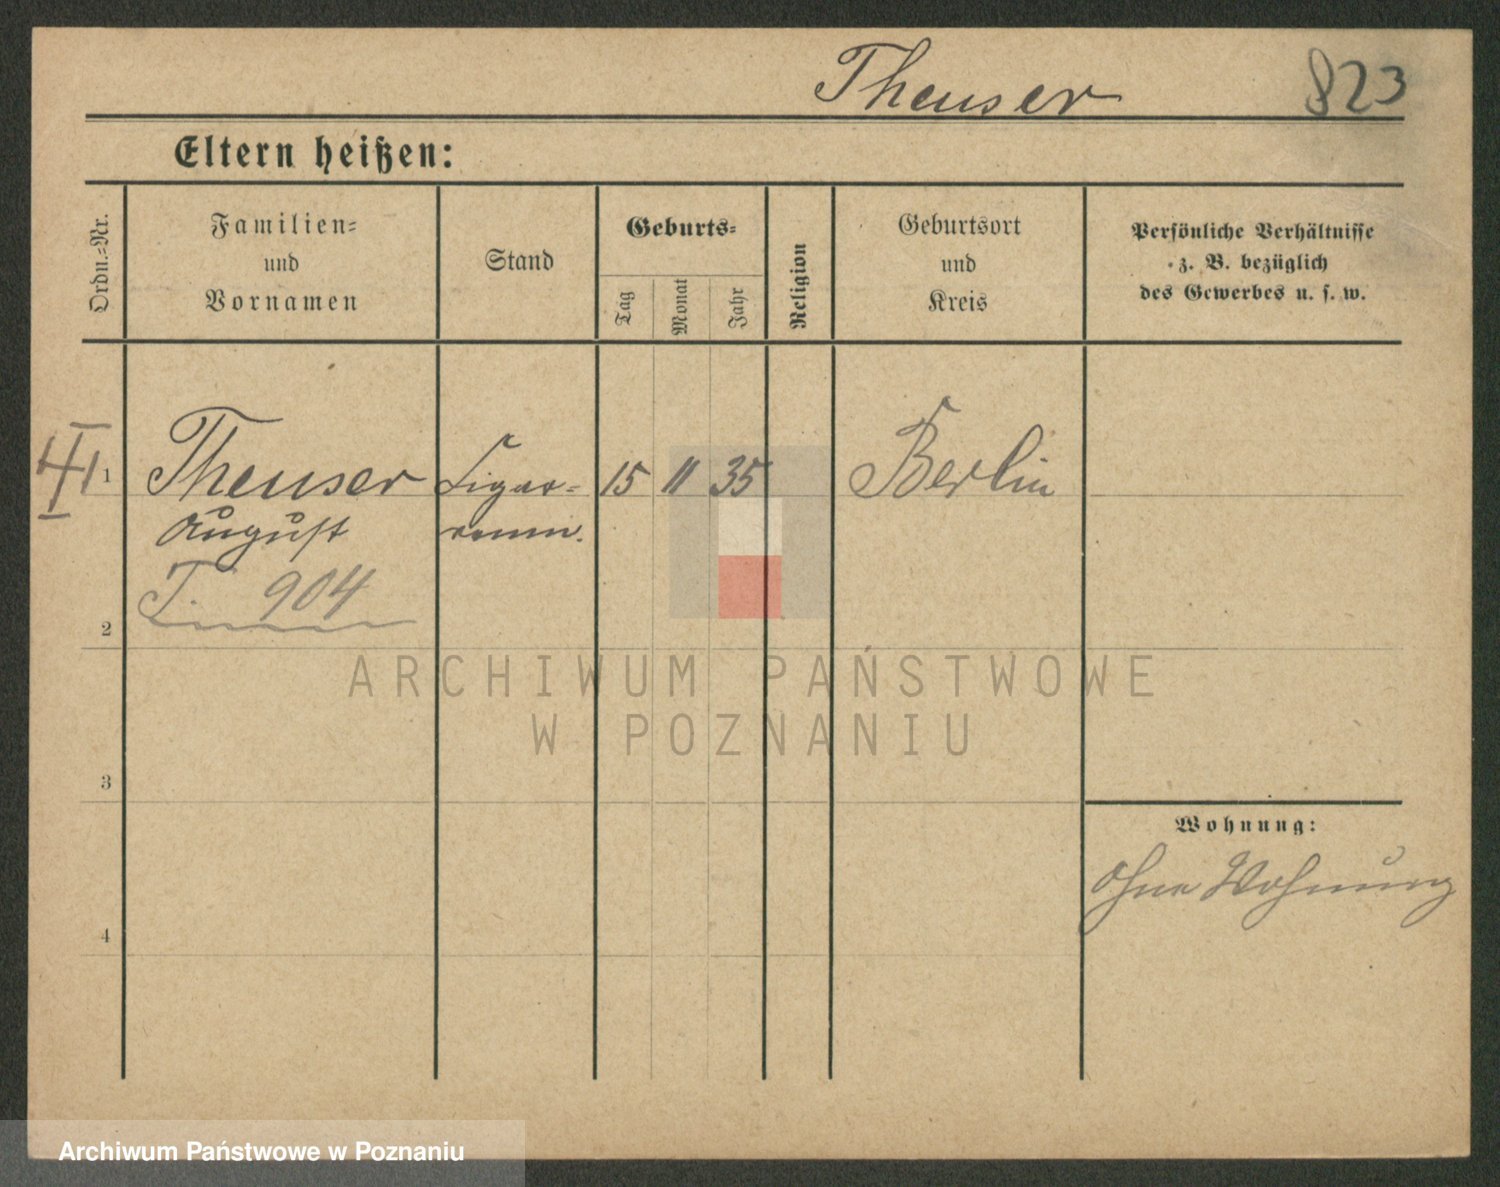 Theuser 823
Eltern heißen:
Ordn.-Nr.
Familien-
und
Vornamen
Stand
Geburts-
Tag
Monat
Jahr
Religion
Geburtsort
und
Kreis
Persönliche Verhältnisse
z. B. bezüglich
des Gewerbes u. s. w.
1 Theuser Cigar- 15 11 35 Berlin
August
T. 904
2
ARCHIWUM PAŃSTWOWE
W POZNANIU
3
Wohnung:
ohne Wohnung
4
Archiwum Państwowe w Poznaniu